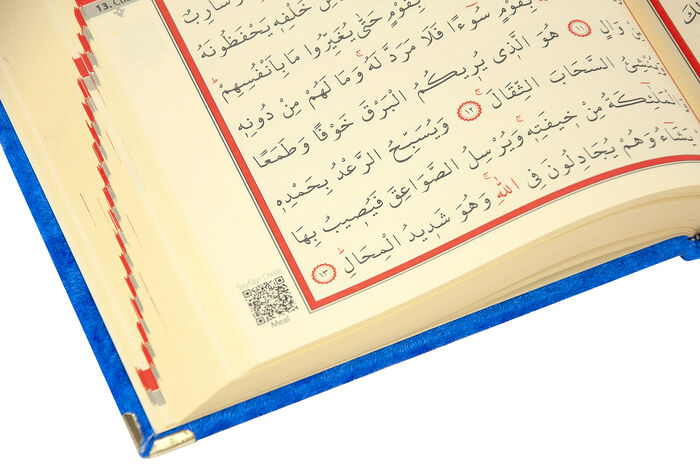 13.
وَسَارِبٌ
خَلْفِهٖ يَحْفَظُونَهُ
بِقَوْمٍ حَتّٰى يُغَيِّرُوا مَا بِاَنْفُسِهِمْ
بِقَوْمٍ سُٓوءًا فَلَا مَرَدَّ لَهُ وَمَا لَهُمْ مِنْ دُونِهٖ
مِنْ وَالٍ ١١ هُوَ الَّذٖي يُرٖيكُمُ الْبَرْقَ خَوْفًا وَطَمَعًا
وَيُنْشِئُ السَّحَابَ الثِّقَالَ ١٢ وَيُسَبِّحُ الرَّعْدُ بِحَمْدِهٖ
وَالْمَلٰٓئِكَةُ مِنْ خٖيفَتِهٖ وَيُرْسِلُ الصَّوَاعِقَ فَيُصٖيبُ بِهَا
يَشَٓاءُ وَهُمْ يُجَادِلُونَ فِي اللّٰهِ وَهُوَ شَدٖيدُ الْمِحَالِ ١٣
Sayfayı Dinle
Meal